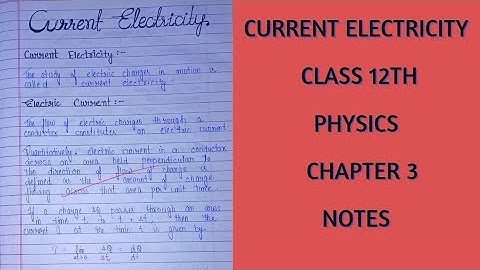 Current Electricity.
Current Electricity :-
The study of electric charges in motion is
called current electricity.
Electric Current :-
The flow of electric charges through a
conductor constitutes an electric current
Quantitatively, electric current in a conductor
across an area held perpendicular to
the direction of flow of charge is
defined as the amount of charge
flowing across that area per unit time.
If a charge ΔQ passes through an area
in time t to t + Δt, then the
current I at the time t is given by-
I = lim Δt→0 ΔQ/Δt = dQ/dt
CURRENT ELECTRICITY
CLASS 12TH
PHYSICS
CHAPTER 3
NOTES